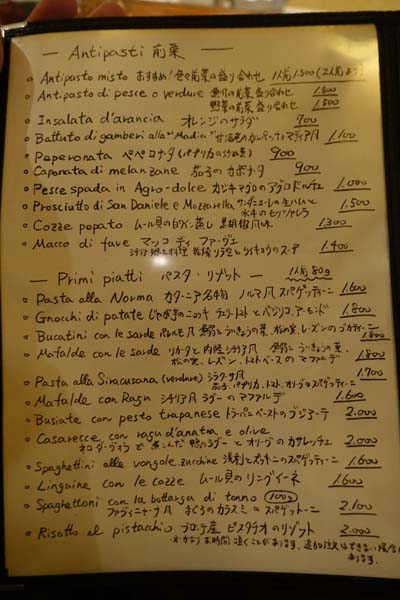 — Antipasti 前菜 —
Antipasto misto おすすめ! 色々前菜の盛り合わせ 1人前 1.500 (2人前より)
Antipasto di pesce o verdure 魚介の前菜盛り合わせ 1.800
野菜の前菜盛り合わせ 1.500
Insalata d'arancia オレンジのサラダ 900
Battuto di gamberi alla "Madia" 甘海老のカルパッチョ マディア風 1.100
Peperonata ペペロナータ (パプリカの炒め煮) 900
Caponata di melanzane 茄子のカポナータ 900
Pesce spada in Agro-dolce カジキマグロのアグロドルチェ 1.000
Prosciutto di San Daniele e Mozzarella サンダニエーレの生ハムと 1.500
水牛のモッツァレラ
Cozze pepato ムール貝の白ワイン蒸し 黒胡椒風味 1.300
Macco di fave マッコ ディ ファーヴェ 1.400
シチリア郷土料理 乾燥ソラ豆とウイキョウのスープ
— Primi piatti パスタ・リゾット — 1人前80g
Pasta alla Norma カターニア名物 ノルマ風 スパゲッティーニ 1.600
Gnocchi di patate じゃがいものニョッキ チェリートマトとバジリコ アーモンド 1.800
Bucatini con le sarde パレルモ風 鰯とういきょうの葉、松の実、レーズンのブカティーニ 1.800
Mafalde con le sarde リカータと内陸シチリア風 鰯とういきょうの葉、
松の実、レーズン、トマトベースのマファルデ 1.800
Pasta alla Siracusana (verdure) シラクーサ風 1.700
茄子、パプリカ、トマト、オリーブのスパゲッティーニ
Mafalde con Ragù シチリア風 ラグーのマファルデ 1.600
Busiate con pesto trapanese トラーパニペーストのブジアーテ 2.000
Casarecce con ragù d'anatra e olive
ネロダーヴォラで煮こんだ鴨のラグーとオリーヴのカサレッチェ 2.000
Spaghettini alle vongole, zucchine 浅利とズッキーニのスパゲッティーニ 1.600
Linguine con le cozze ムール貝のリングイーネ 1.600
Spaghettoni con la bottarga di tonno (100g) 2.100
ファヴィニャーナ風 まぐろのカラスミのスパゲットーニ
Risotto al pistacchio ブロンテ産 ピスタチオのリゾット 2.000
※かなりお時間頂くことがあります。追加注文はできない場合が
あります。